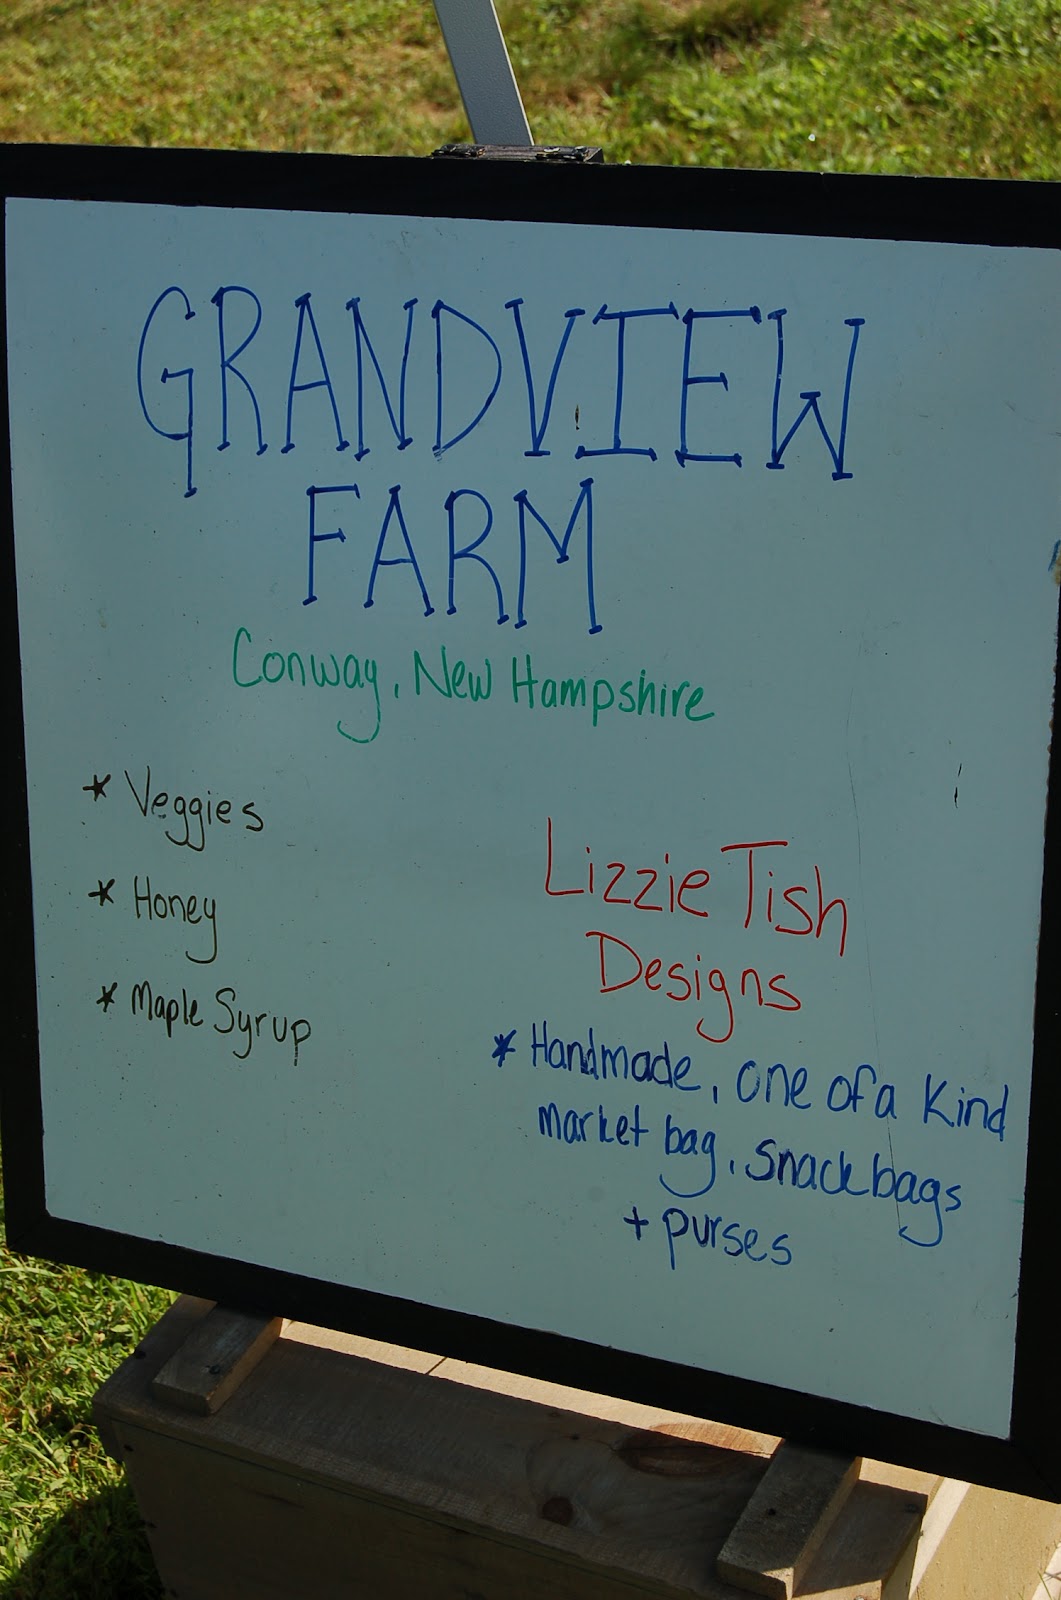 GRANDVIEW
FARM
Conway, New Hampshire
* Veggies
* Honey
* Maple Syrup
Lizzie Tish
Designs
* Handmade, one of a kind
market bag, snack bags
+ purses